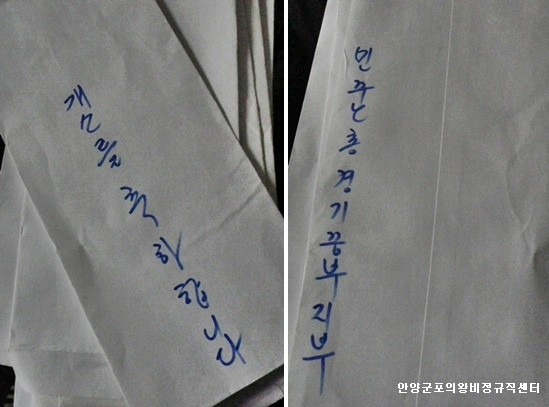 개소를 축하합니다
민주노총 경기중부지부
안양군포의왕비정규직센터